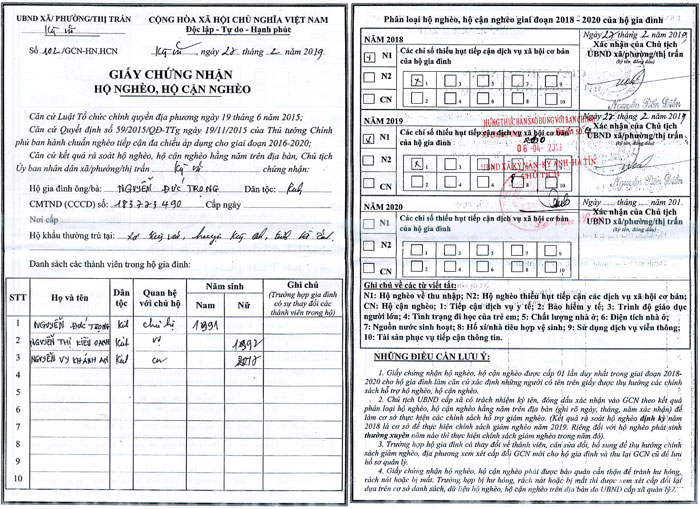 UBND XÃ/ PHƯỜNG/THỊ TRẤN
Kỳ vũ
Số 102 /GCN-HN.HCN
CỘNG HÒA XÃ HỘI CHỦ NGHĨA VIỆT NAM
Độc lập - Tự do - Hạnh phúc
Kỳ vũ, ngày 27 tháng 2 năm 2019
GIẤY CHỨNG NHẬN
HỘ NGHÈO, HỘ CẬN NGHÈO
Căn cứ Luật Tổ chức chính quyền địa phương ngày 19 tháng 6 năm 2015;
Căn cứ Quyết định số 59/2015/QĐ-TTg ngày 19/11/2015 của Thủ tướng Chính
phủ ban hành chuẩn nghèo tiếp cận đa chiều áp dụng cho giai đoạn 2016-2020;
Căn cứ kết quả rà soát hộ nghèo, hộ cận nghèo hằng năm trên địa bàn, Chủ tịch
Ủy ban nhân dân xã/phường/thị trấn Kỳ vũ chứng nhận:
Hộ gia đình ông/bà: NGUYỄN ĐỨC TRỌNG Dân tộc: Kinh
CMTND (CCCD) số: 183771490 Cấp ngày
Nơi cấp
Hộ khẩu thường trú tại:
Danh sách các thành viên trong hộ gia đình:
STT Họ và tên Dân tộc Quan hệ với chủ hộ Năm sinh Nam Nữ Ghi chú (Trường hợp gia đình có sự thay đổi các thành viên trong hộ)
1 NGUYỄN ĐỨC TRỌNG Kinh chủ hộ 1991
2 NGUYỄN THỊ KIỀU OANH Kinh vợ 1992
3 NGUYỄN VY KHÁNH AN Kinh con
4
5
6
7
8
9
10
Phân loại hộ nghèo, hộ cận nghèo giai đoạn 2018 - 2020 của hộ gia đình
NĂM 2018
N1
N2
CN
Các chỉ số thiếu hụt tiếp cận dịch vụ xã hội cơ bản
của hộ gia đình
1 3 5 7 9
2 4 6 8 10
Ngày 27 tháng 2 năm 2019
Xác nhận của Chủ tịch
UBND xã/phường/thị trấn
(ký tên, đóng dấu)
NĂM 2019
N1
N2
CN
CHỨNG THỰC BẢN SAO ĐÚNG VỚI BẢN CHÍNH
06-04-
CHỦ TỊCH
Xác nhận của Chủ tịch
UBND xã/phường/thị trấn
(ký tên, đóng dấu)
NĂM 2020
N1
N2
CN
Các chỉ số thiếu hụt tiếp cận dịch vụ xã hội cơ bản
của hộ gia đình
1 3 5 7 9
2 4 6 8 10
Ngày ..... tháng ..... năm 201.
Xác nhận của Chủ tịch
UBND xã/phường/thị trấn
(ký tên, đóng dấu)
Ghi chú về các từ viết tắt:
N1: Hộ nghèo về thu nhập; N2: Hộ nghèo thiếu hụt tiếp cận các dịch vụ xã hội cơ bản;
CN: Hộ cận nghèo; 1: Tiếp cận dịch vụ y tế; 2: Bảo hiểm y tế; 3: Trình độ giáo dục
người lớn; 4: Tình trạng đi học của trẻ em; 5: Chất lượng nhà ở; 6: Diện tích nhà ở;
7: Nguồn nước sinh hoạt; 8: Hố xí/nhà tiêu hợp vệ sinh; 9: Sử dụng dịch vụ viễn thông;
10: Tài sản phục vụ tiếp cận thông tin.
NHỮNG ĐIỀU CẦN LƯU Ý:
1. Giấy chứng nhận hộ nghèo, hộ cận nghèo được cấp 01 lần duy nhất trong giai đoạn 2018-
2020 cho hộ gia đình làm căn cứ xác định những người có tên trên giấy được thụ hưởng các chính
sách hỗ trợ hộ nghèo, hộ cận nghèo.
2. Chủ tịch UBND cấp xã có trách nhiệm ký tên, đóng dấu xác nhận vào GCN theo kết quả
phân loại hộ nghèo, hộ cận nghèo hằng năm trên địa bàn (ghi rõ ngày, tháng, năm xác nhận) để
làm cơ sở thực hiện các chính sách hỗ trợ giảm nghèo. (Kết quả rà soát hộ nghèo định kỳ năm
2018 là cơ sở để thực hiện chính sách giảm nghèo năm 2019. Riêng đối với hộ nghèo phát sinh
thường xuyên năm nào thì thực hiện chính sách giảm nghèo trong năm đó).
3. Trường hợp hộ gia đình có thay đổi về thành viên, cần sửa đổi, bổ sung để thụ hưởng chính
sách giảm nghèo, địa phương xem xét cấp đổi GCN mới cho hộ gia đình và thu lại GCN cũ để lưu
hồ sơ quản lý.
4. Giấy chứng nhận hộ nghèo, hộ cận nghèo phải được bảo quản cẩn thận để tránh hư hỏng,
rách nát hoặc bị mất. Trường hợp bị hư hỏng, rách nát hoặc bị mất thì được xem xét cấp đổi lại
dựa trên cơ sở danh sách, dữ liệu hộ nghèo, hộ cận nghèo trên địa bàn do UBND cấp xã quản lý.